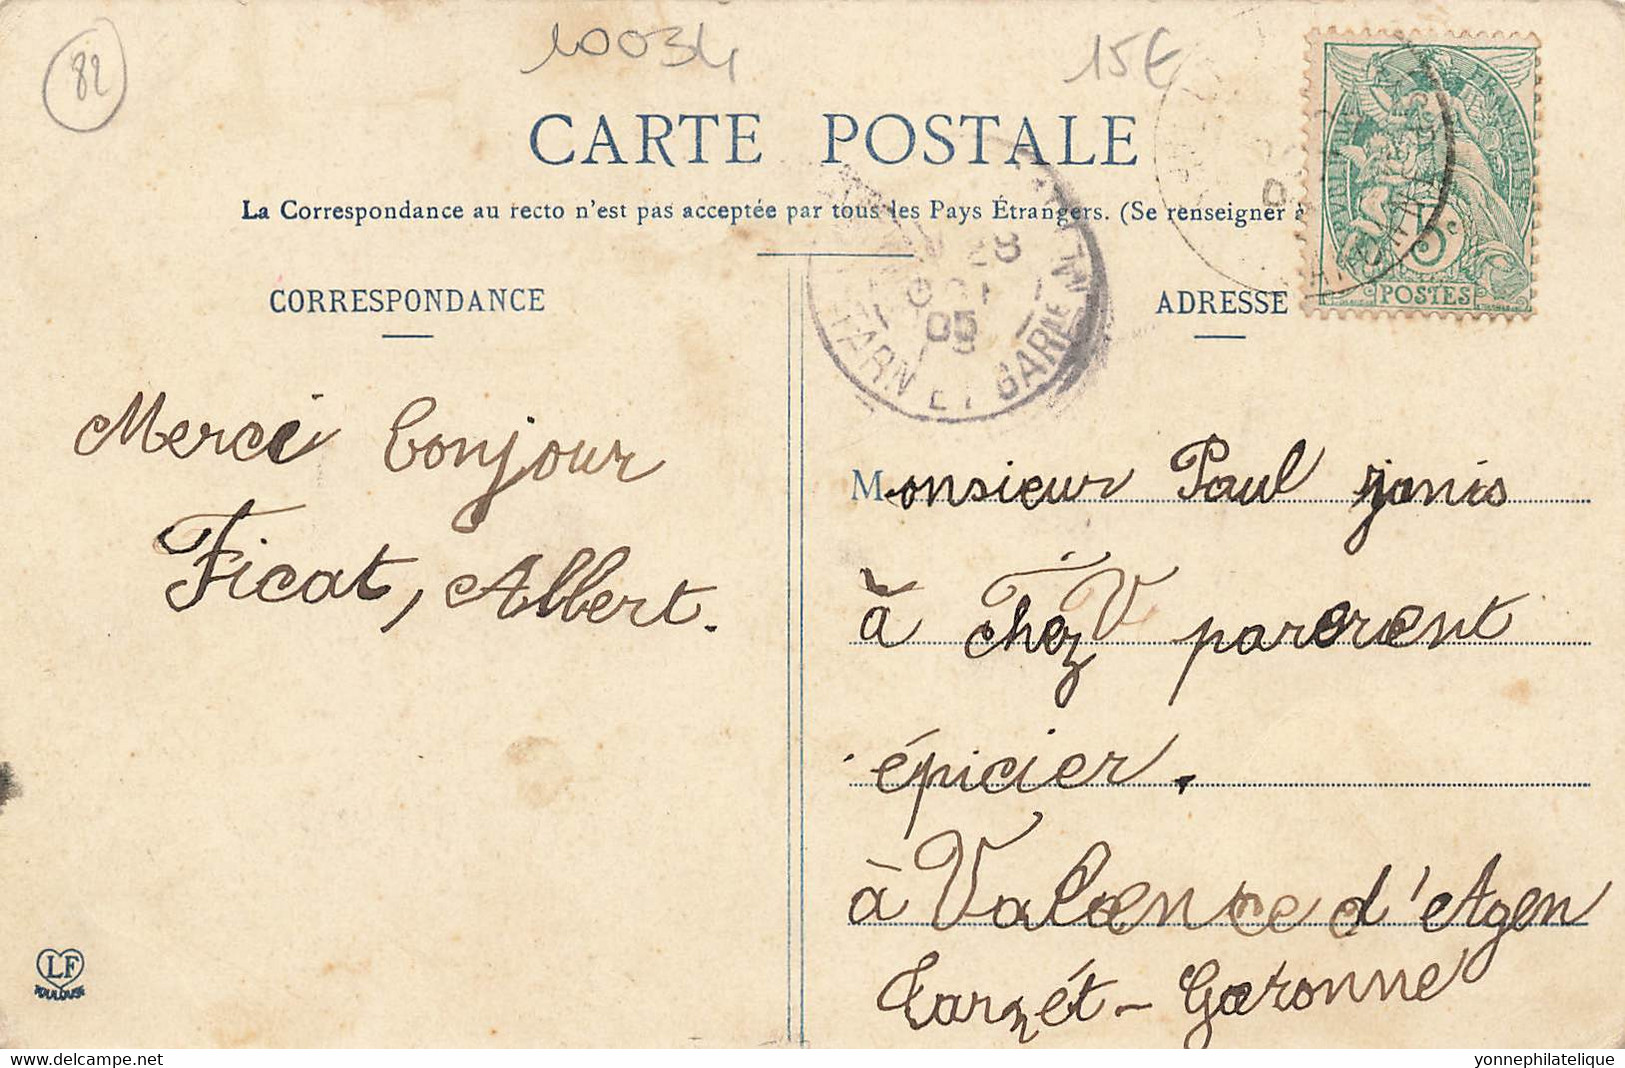 82
10034
15€
CARTE POSTALE
La Correspondance au recto n'est pas acceptée par tous les Pays Étrangers. (Se renseigner à
RÉPUBLIQUE FRANÇAISE
5c
POSTES
28
OCT
05
TARN ET GARNE
CORRESPONDANCE
ADRESSE
Merci bonjour
Ficat, Albert.
Monsieur Paul janis
à Chez V parerent
épicier.
à Valence d'Agen
Tarn ét-Garonne
LF
TOULOUSE
delcampe.net
yonnephilatelique